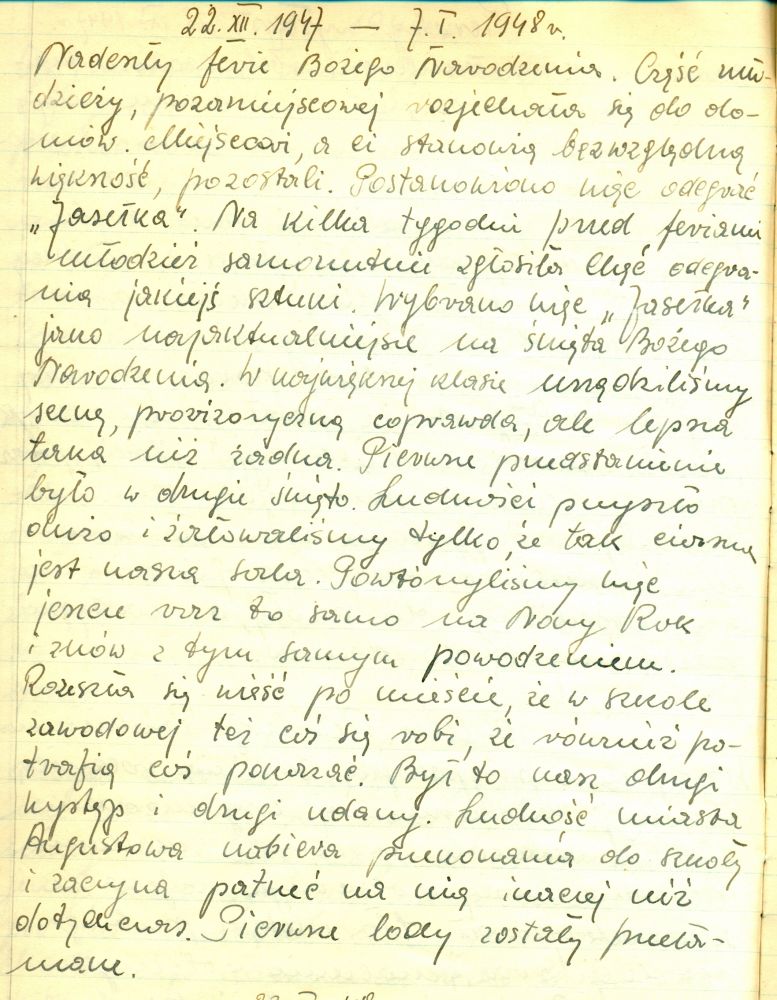 22.XII.1947 — 7.I.1948 r.
Nadeszły ferie Bożego Narodzenia. Część mło-
dzieży, pozamiejscowej rozjechała się do do-
mów. Miejscowi, a ci stanowią bezwzględną
większość, pozostali. Postanowiono więc odegrać
„Jasełka”. Na kilka tygodni przed feriami
młodzież samorzutnie zgłosiła chęć odegra-
nia jakiejś sztuki. Wybrano więc „Jasełka”
jako najaktualniejsze na święta Bożego
Narodzenia. W największej klasie urządziliśmy
scenę, prowizoryczną coprawda, ale lepsza
taka niż żadna. Pierwsze przedstawienie
było w drugie święto. Ludności przyszło
dużo i żałowaliśmy tylko, że tak ciasna
jest nasza sala. Powtórzyliśmy więc
jeszcze raz to samo na Nowy Rok
i znów z tym samym powodzeniem.
Rozeszła się wieść po mieście, że w szkole
zawodowej też coś się robi, że również po-
trafią coś pokazać. Był to nasz drugi
występ i drugi udany. Ludność miasta
Augustowa nabiera przekonania do szkoły
i zaczyna patrzeć na nią inaczej niż
dotychczas. Pierwsze lody zostały przeła-
mane.